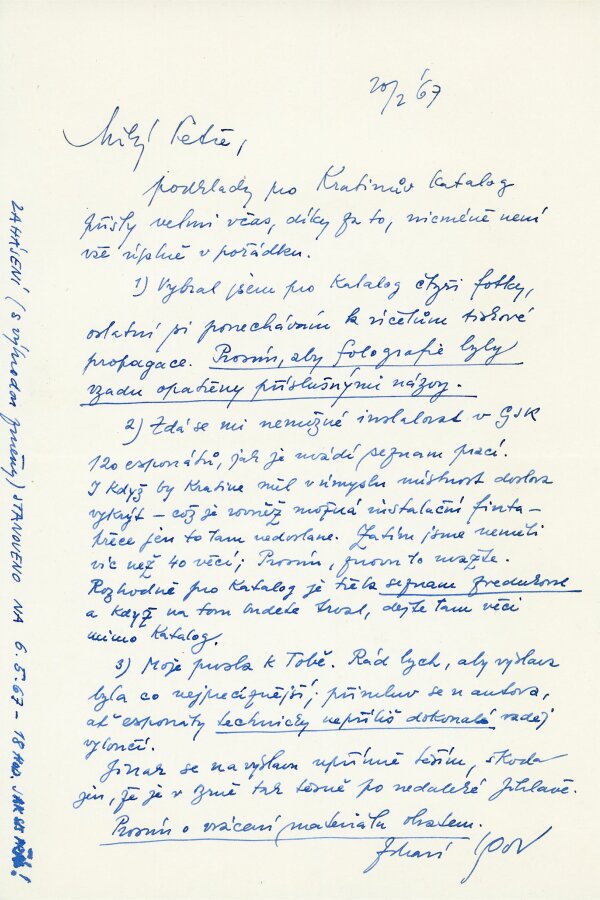 20/2 67
Milý Petře,
podklady pro Kratinův katalog
přišly velmi včas, díky za to, nicméně není
vše úplně v pořádku.
1) Vybral jsem pro katalog čtyři fotky,
ostatní si ponechávám k účelům tiskové
propagace. Prosím, aby fotografie byly
vzadu opatřeny příslušnými názvy.
2) Zdá se mi nemožné instalovat v GSK
120 exponátů, jak je uvádí seznam prací.
I když by Kratina měl v úmyslu místnost doslova
vykrýt – což je rovněž možná instalační finta –
přece jen to tam nedostane. Zatím jsme neměli
víc než 40 věcí; Prosím, znovu to uvažte.
Rozhodně pro katalog je třeba seznam zredukovat
a když na tom budete trvat, dejte tam věci
mimo katalog.
3) Moje prosba k Tobě. Rád bych, aby výstava
byla co nejprecíznější; přimluv se u autora,
ať exponáty technicky nepříliš dokonalé raději
vyloučí.
Jinak se na výstavu upřímně těším, škoda
jen, že je v Brně tak těsně po nedaleké Jihlavě.
Prosím o vrácení materiálu obratem.
Zdraví
ZAHÁJENÍ (s výhradou změny) STANOVENO NA 6.5.67 – 18 HOD. JAK SE !